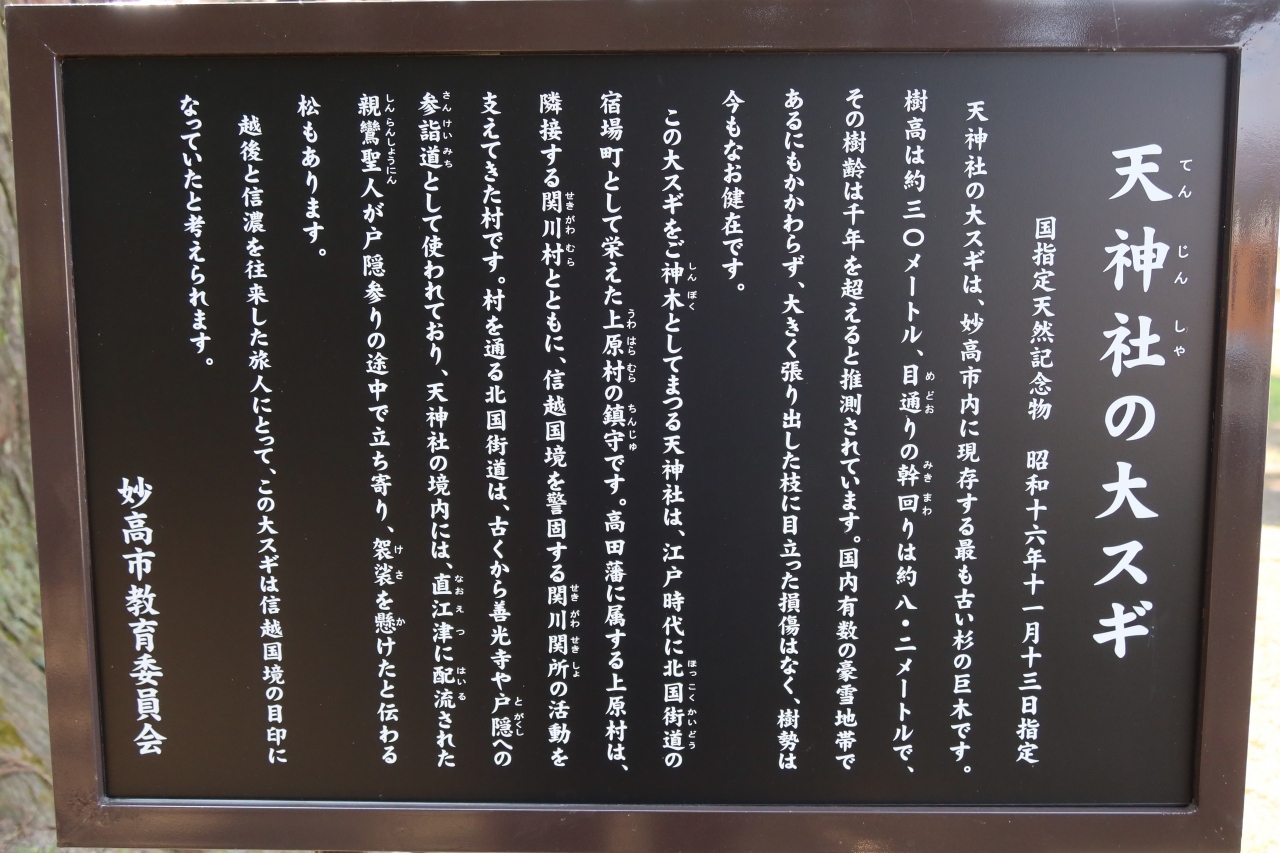 天神社の大スギ
てんじんしゃ
国指定天然記念物　昭和十六年十一月十三日指定
天神社の大スギは、妙高市内に現存する最も古い杉の巨木です。
樹高は約三〇メートル、目通りの幹回りは約八・二メートルで、
めどお　みきまわ
その樹齢は千年を超えると推測されています。国内有数の豪雪地帯で
あるにもかかわらず、大きく張り出した枝に目立った損傷はなく、樹勢は
今もなお健在です。
この大スギをご神木としてまつる天神社は、江戸時代に北国街道の
しんぼく　ほっこくかいどう
宿場町として栄えた上原村の鎮守です。高田藩に属する上原村は、
うわはらむら　ちんじゅ
隣接する関川村とともに、信越国境を警固する関川関所の活動を
せきがわむら　せきがわせきしょ
支えてきた村です。村を通る北国街道は、古くから善光寺や戸隠への
とがくし
参詣道として使われており、天神社の境内には、直江津に配流された
さんけいみち　なおえつ　はいる
親鸞聖人が戸隠参りの途中で立ち寄り、袈裟を懸けたと伝わる
しんらんしょうにん　けさ　か
松もあります。
越後と信濃を往来した旅人にとって、この大スギは信越国境の目印に
なっていたと考えられます。
妙高市教育委員会